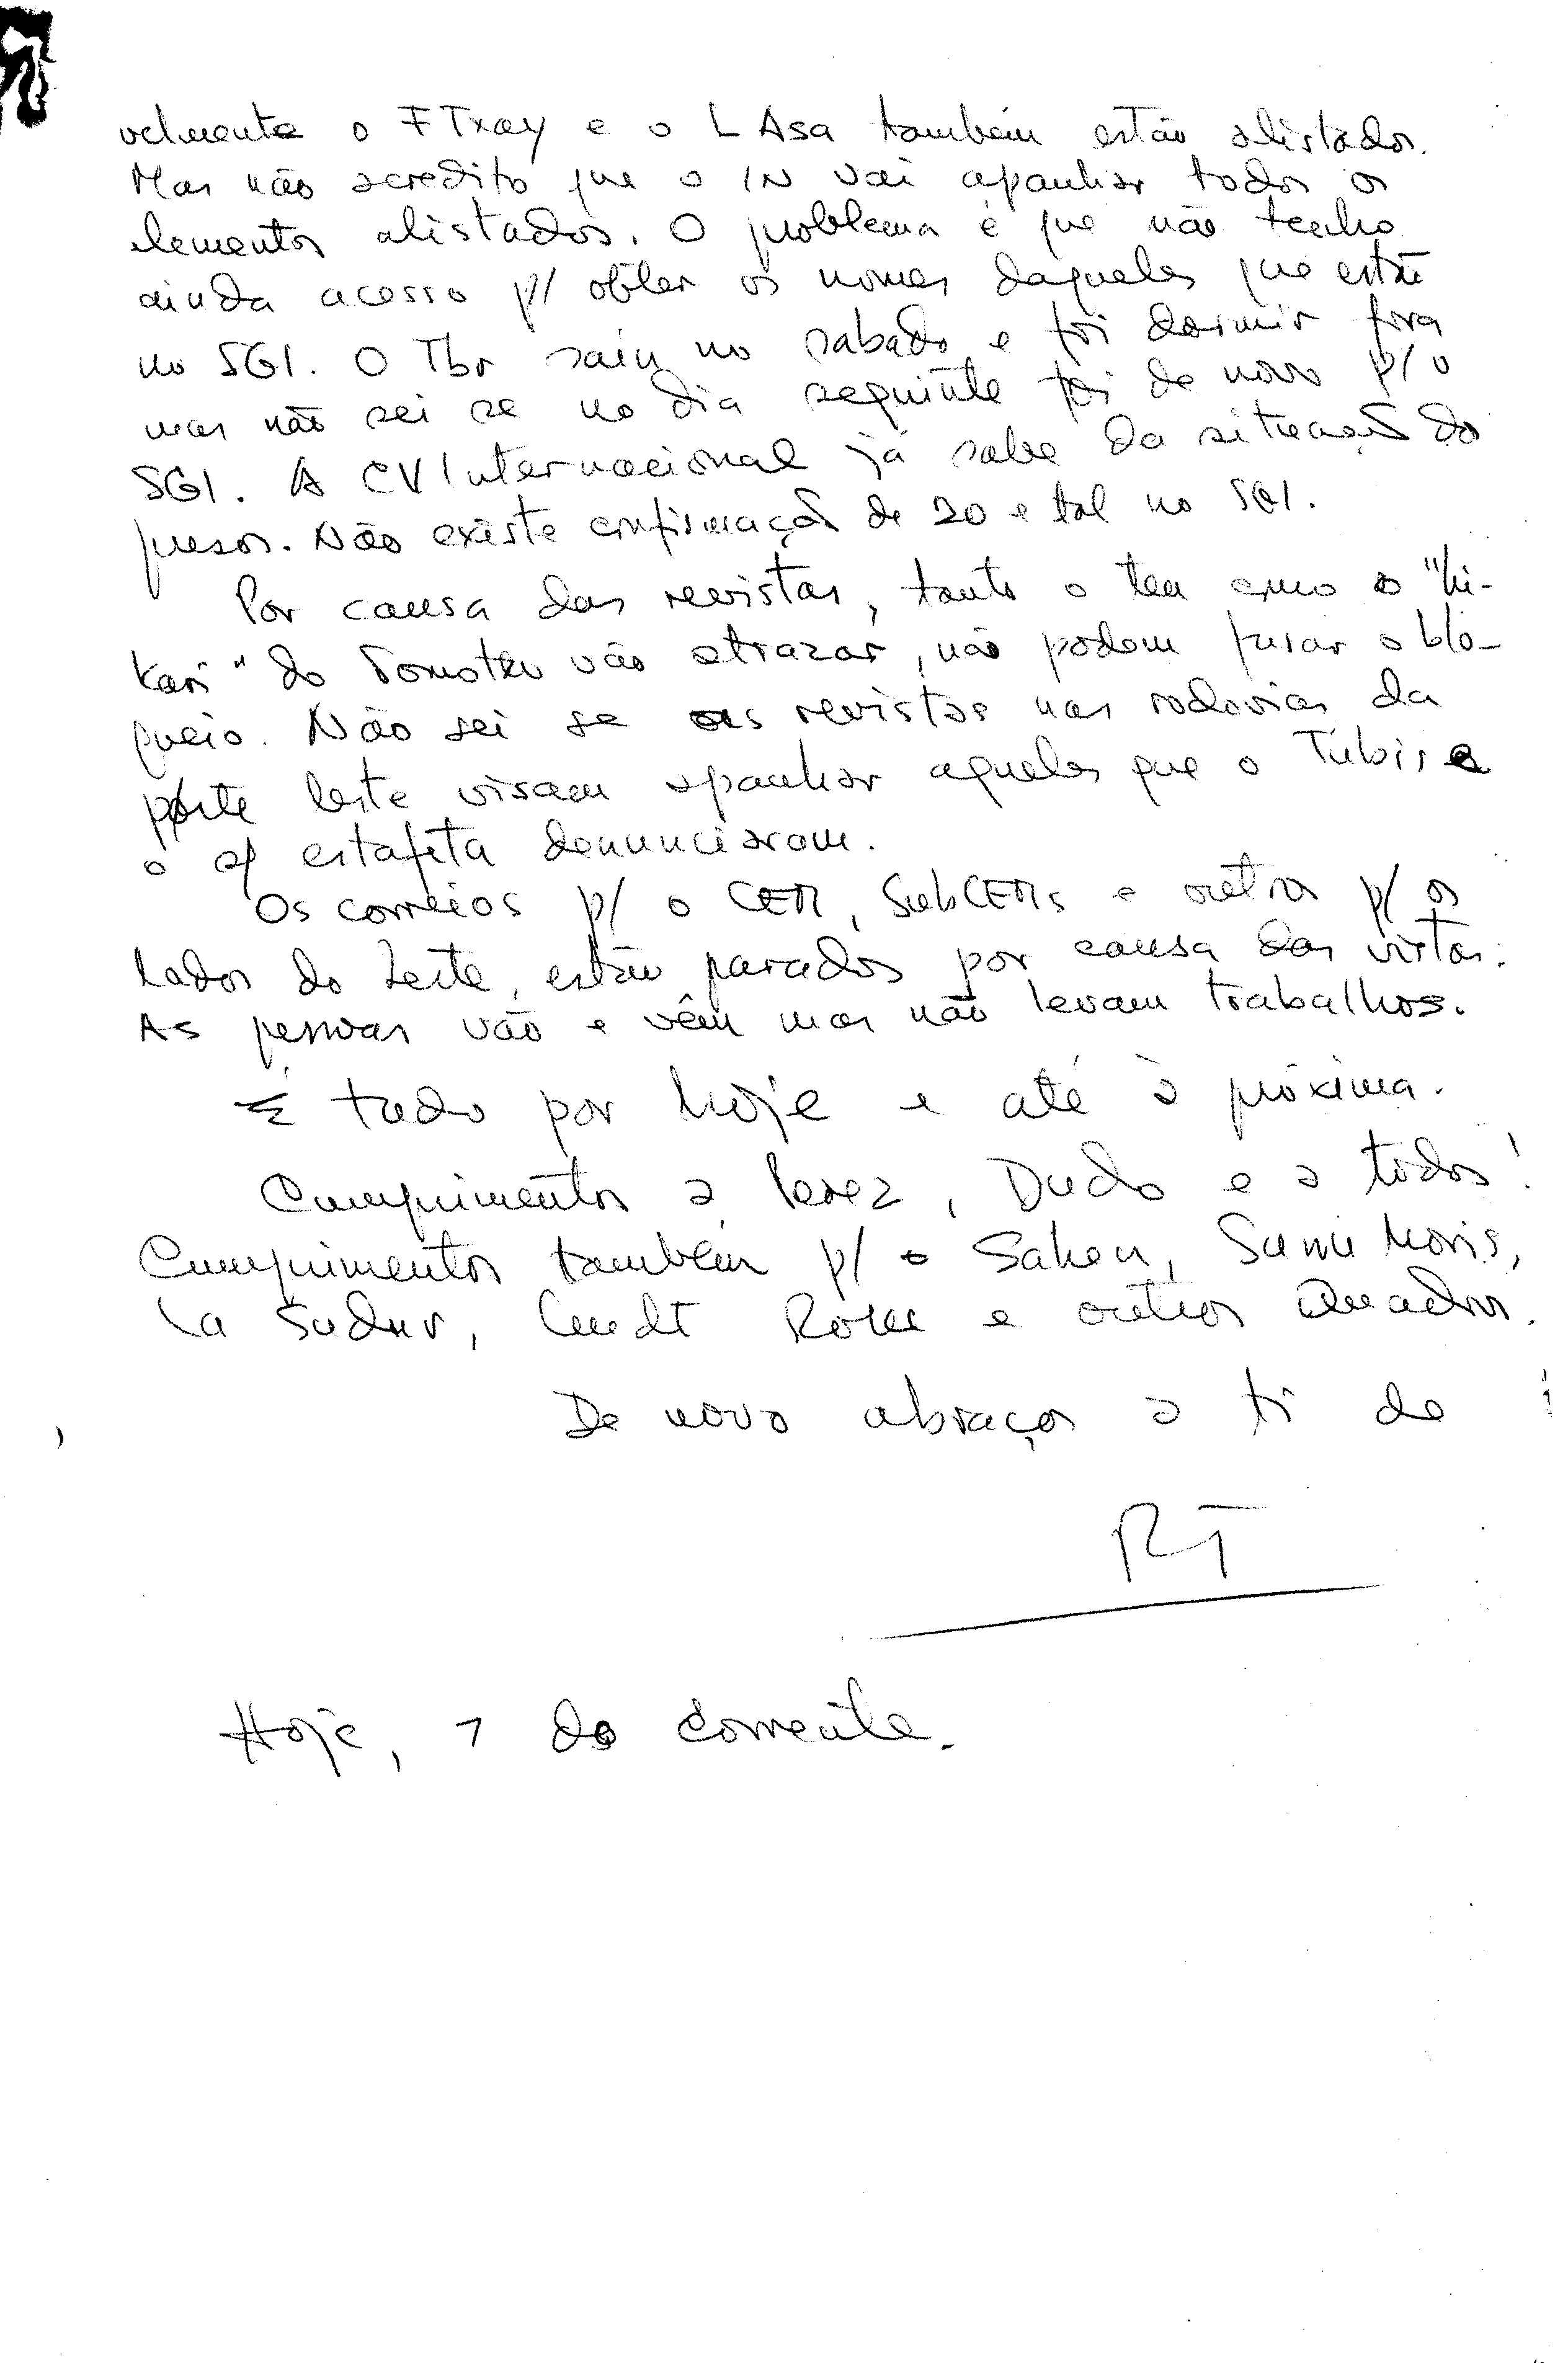 velmente o FTxay e o LAsa também estão alistados.
Mas não acredito que o IN vai apanhar todos os
elementos alistados. O problema é que não tenho
ainda acesso p/ obter os nomes daqueles que estão
no SGI. O Tbr saiu no sabado e foi dormir fora
mas não sei se no dia seguinte foi de novo p/ o
SGI. A CVInternacional já sabe da situação do
presos. Não existe confirmação de 20 e tal no SGI.
Por causa das revistas, tanto o teu como o "hi-
kari" do vão atrazar, não podem furar o blo-
queio. Não sei se as revistas nas rodovias da
parte leste visam apanhar aqueles que o Tubis e
o of estafeta denunciaram.
Os correios p/ o CEM, SubCEMs e outros p/ os
lados do Leste, estão parados por causa das vistas.
As pessoas vão e vêm mas não levam trabalhos.
É tudo por hoje e até à próxima.
Cumprimentos a , Dudo e a todos!
Cumprimentos também p/ o Saken,
La Sudur, e outros Quadros.
De novo abraços a ti do
RT
Hoje, 7 do corrente.